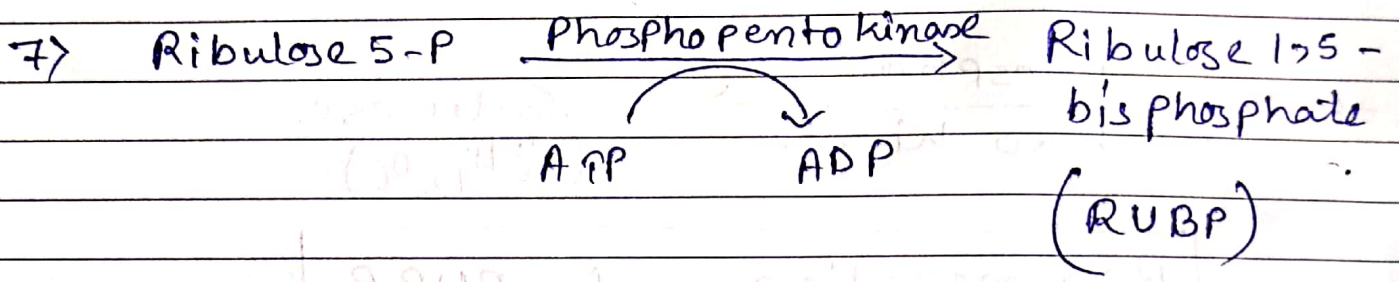 7) Ribulose 5-P Phosphopentokinase Ribulose 1,5-
bisphosphate
ATP ADP
(RUBP)